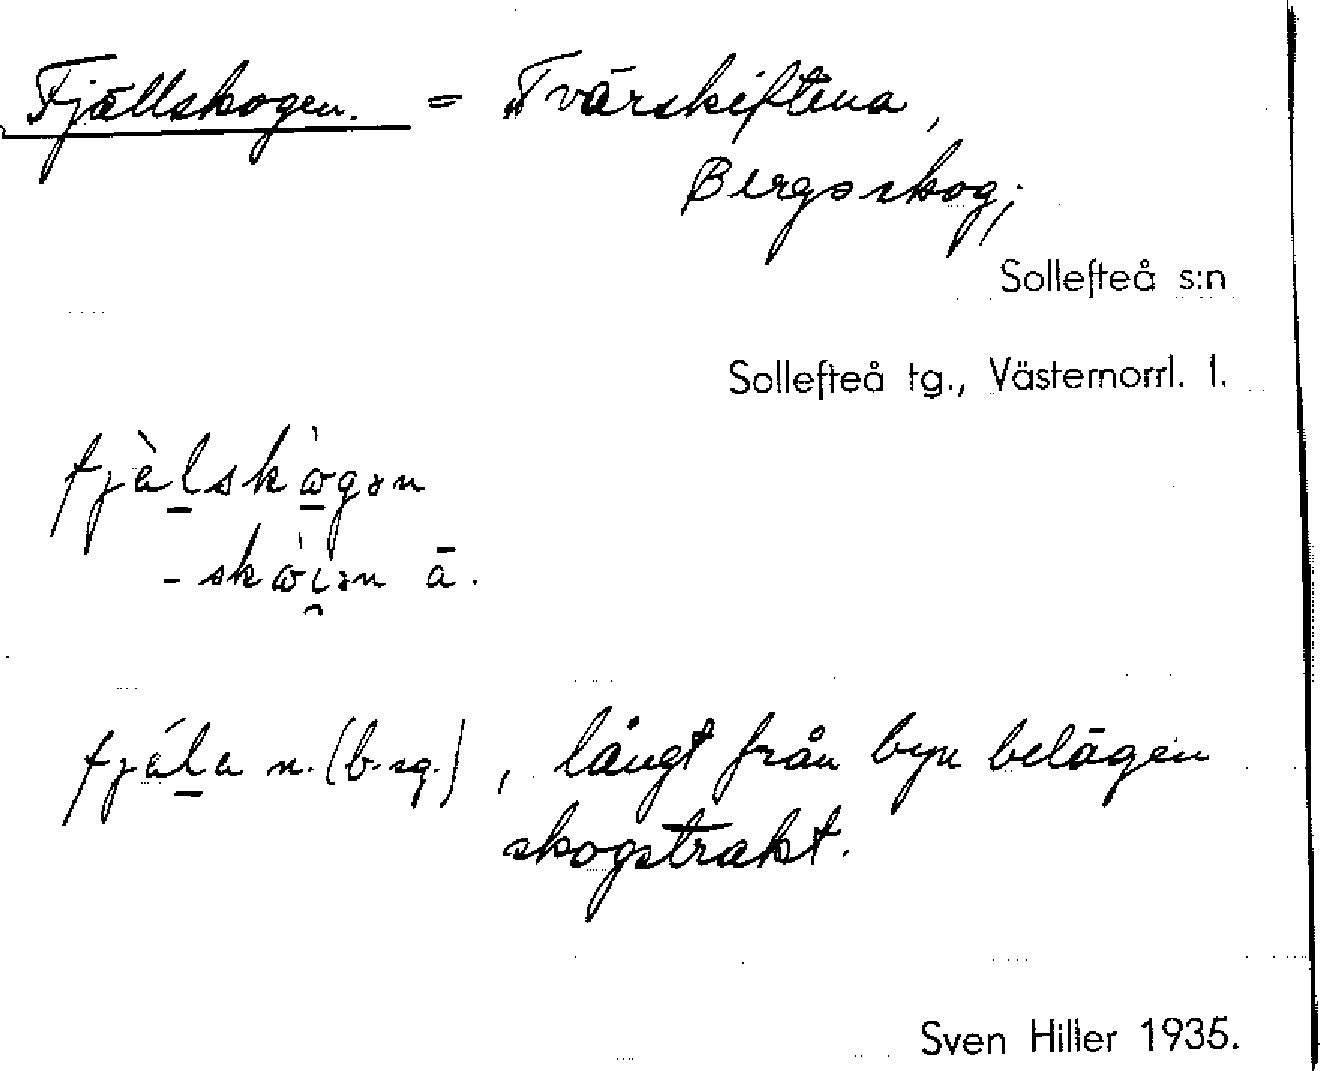 Fjällskogen. = Tvärskiftena,
Bergsskog;
Sollefteå s:n
Sollefteå tg., Västernorrl. l.
fjälskògən
-skòi̯ən ä.
fjäla n. (b. sg.), långt från byn belägen
skogstrakt.
Sven Hiller 1935.